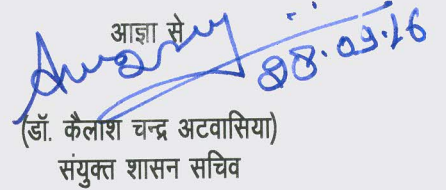 आज्ञा से
28.09.16
(डॉ. कैलाश चन्द्र अटवासिया)
संयुक्त शासन सचिव